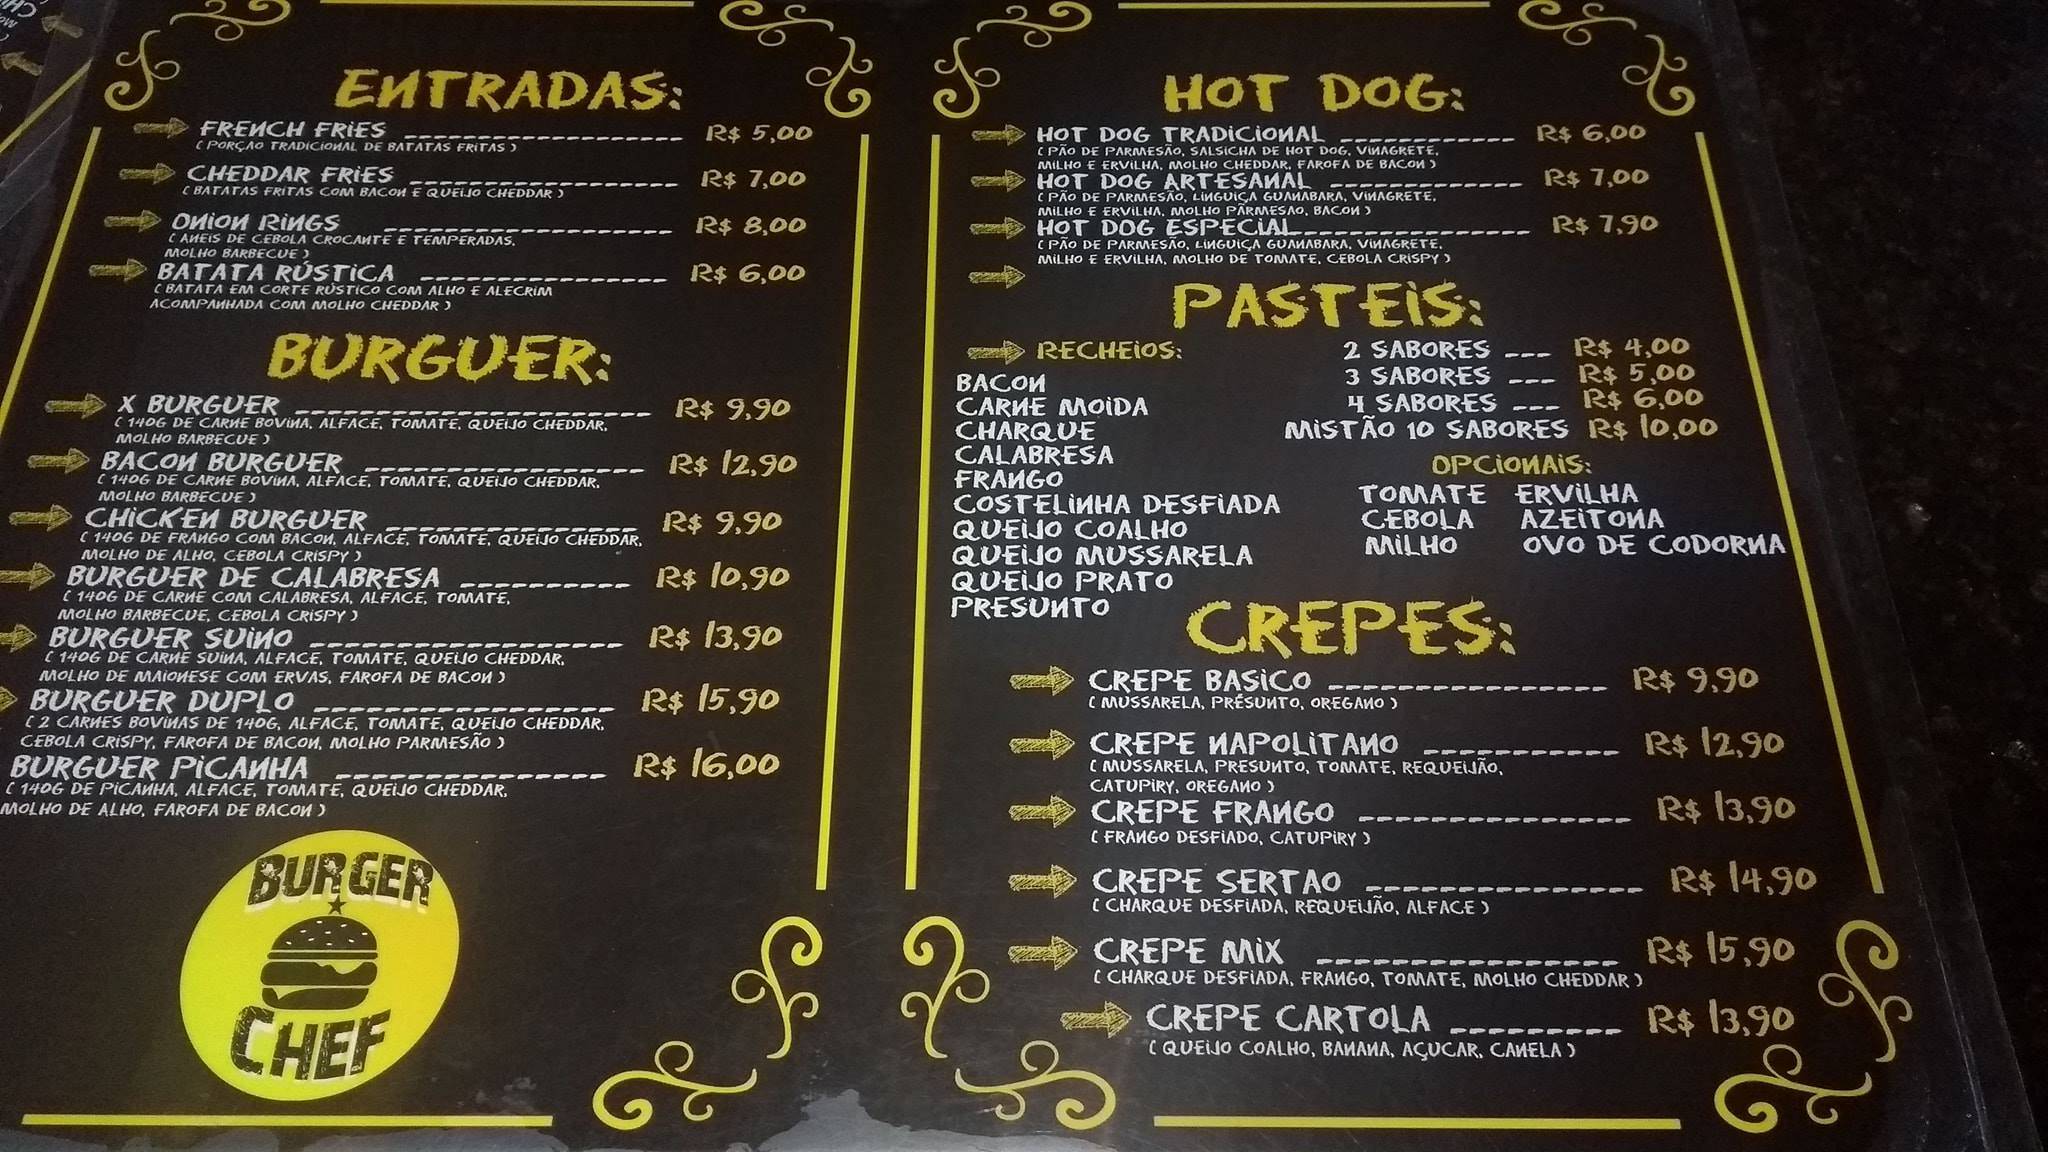 ENTRADAS:
FRENCH FRIES R$ 5,00
( PORÇAO TRADICIONAL DE BATATAS FRITAS )
CHEDDAR FRIES R$ 7,00
( BATATAS FRITAS COM BACON E QUEIJO CHEDDAR )
ONION RINGS R$ 8,00
( ANEIS DE CEBOLA CROCANTE E TEMPERADAS,
MOLHO BARBECUE )
BATATA RÚSTICA R$ 6,00
( BATATA EM CORTE RÚSTICO COM ALHO E ALECRIM
ACOMPANHADA COM MOLHO CHEDDAR )
BURGUER:
X BURGUER R$ 9,90
( 140G DE CARNE BOVINA, ALFACE, TOMATE, QUEIJO CHEDDAR,
MOLHO BARBECUE )
BACON BURGUER R$ 12,90
( 140G DE CARNE BOVINA, ALFACE, TOMATE, QUEIJO CHEDDAR,
MOLHO BARBECUE )
CHICKEN BURGUER R$ 9,90
( 140G DE FRANGO COM BACON, ALFACE, TOMATE, QUEIJO CHEDDAR,
MOLHO DE ALHO, CEBOLA CRISPY )
BURGUER DE CALABRESA R$ 10,90
( 140G DE CARNE COM CALABRESA, ALFACE, TOMATE,
MOLHO BARBECUE, CEBOLA CRISPY )
BURGUER SUINO R$ 13,90
( 140G DE CARNE SUINA, ALFACE, TOMATE, QUEIJO CHEDDAR,
MOLHO DE MAIONESE COM ERVAS, FAROFA DE BACON )
BURGUER DUPLO R$ 15,90
( 2 CARNES BOVINAS DE 140G, ALFACE, TOMATE, QUEIJO CHEDDAR,
CEBOLA CRISPY, FAROFA DE BACON, MOLHO PARMESÃO )
BURGUER PICANHA R$ 16,00
( 140G DE PICANHA, ALFACE, TOMATE, QUEIJO CHEDDAR,
MOLHO DE ALHO, FAROFA DE BACON )
BURGER
CHEF
HOT DOG:
HOT DOG TRADICIONAL R$ 6,00
( PÃO DE PARMESÃO, SALSICHA DE HOT DOG, VINAGRETE,
MILHO E ERVILHA, MOLHO CHEDDAR, FAROFA DE BACON )
HOT DOG ARTESANAL R$ 7,00
( PÃO DE PARMESÃO, LINGUIÇA GUANABARA, VINAGRETE,
MILHO E ERVILHA, MOLHO PARMESAO, BACON )
HOT DOG ESPECIAL R$ 7,90
( PÃO DE PARMESÃO, LINGUIÇA GUANABARA, VINAGRETE,
MILHO E ERVILHA, MOLHO DE TOMATE, CEBOLA CRISPY )
PASTEIS:
RECHEIOS:
BACON
CARNE MOIDA
CHARQUE
CALABRESA
FRANGO
COSTELINHA DESFIADA
QUEIJO COALHO
QUEIJO MUSSARELA
QUEIJO PRATO
PRESUNTO
2 SABORES --- R$ 4,00
3 SABORES --- R$ 5,00
4 SABORES --- R$ 6,00
MISTÃO 10 SABORES R$ 10,00
OPCIONAIS:
TOMATE ERVILHA
CEBOLA AZEITONA
MILHO OVO DE CODORNA
CREPES:
CREPE BASICO R$ 9,90
( MUSSARELA, PRESUNTO, OREGANO )
CREPE NAPOLITANO R$ 12,90
( MUSSARELA, PRESUNTO, TOMATE, REQUEIJÃO,
CATUPIRY, OREGANO )
CREPE FRANGO R$ 13,90
( FRANGO DESFIADO, CATUPIRY )
CREPE SERTAO R$ 14,90
( CHARQUE DESFIADA, REQUEIJÃO, ALFACE )
CREPE MIX R$ 15,90
( CHARQUE DESFIADA, FRANGO, TOMATE, MOLHO CHEDDAR )
CREPE CARTOLA R$ 13,90
( QUEIJO COALHO, BANANA, AÇUCAR, CANELA )